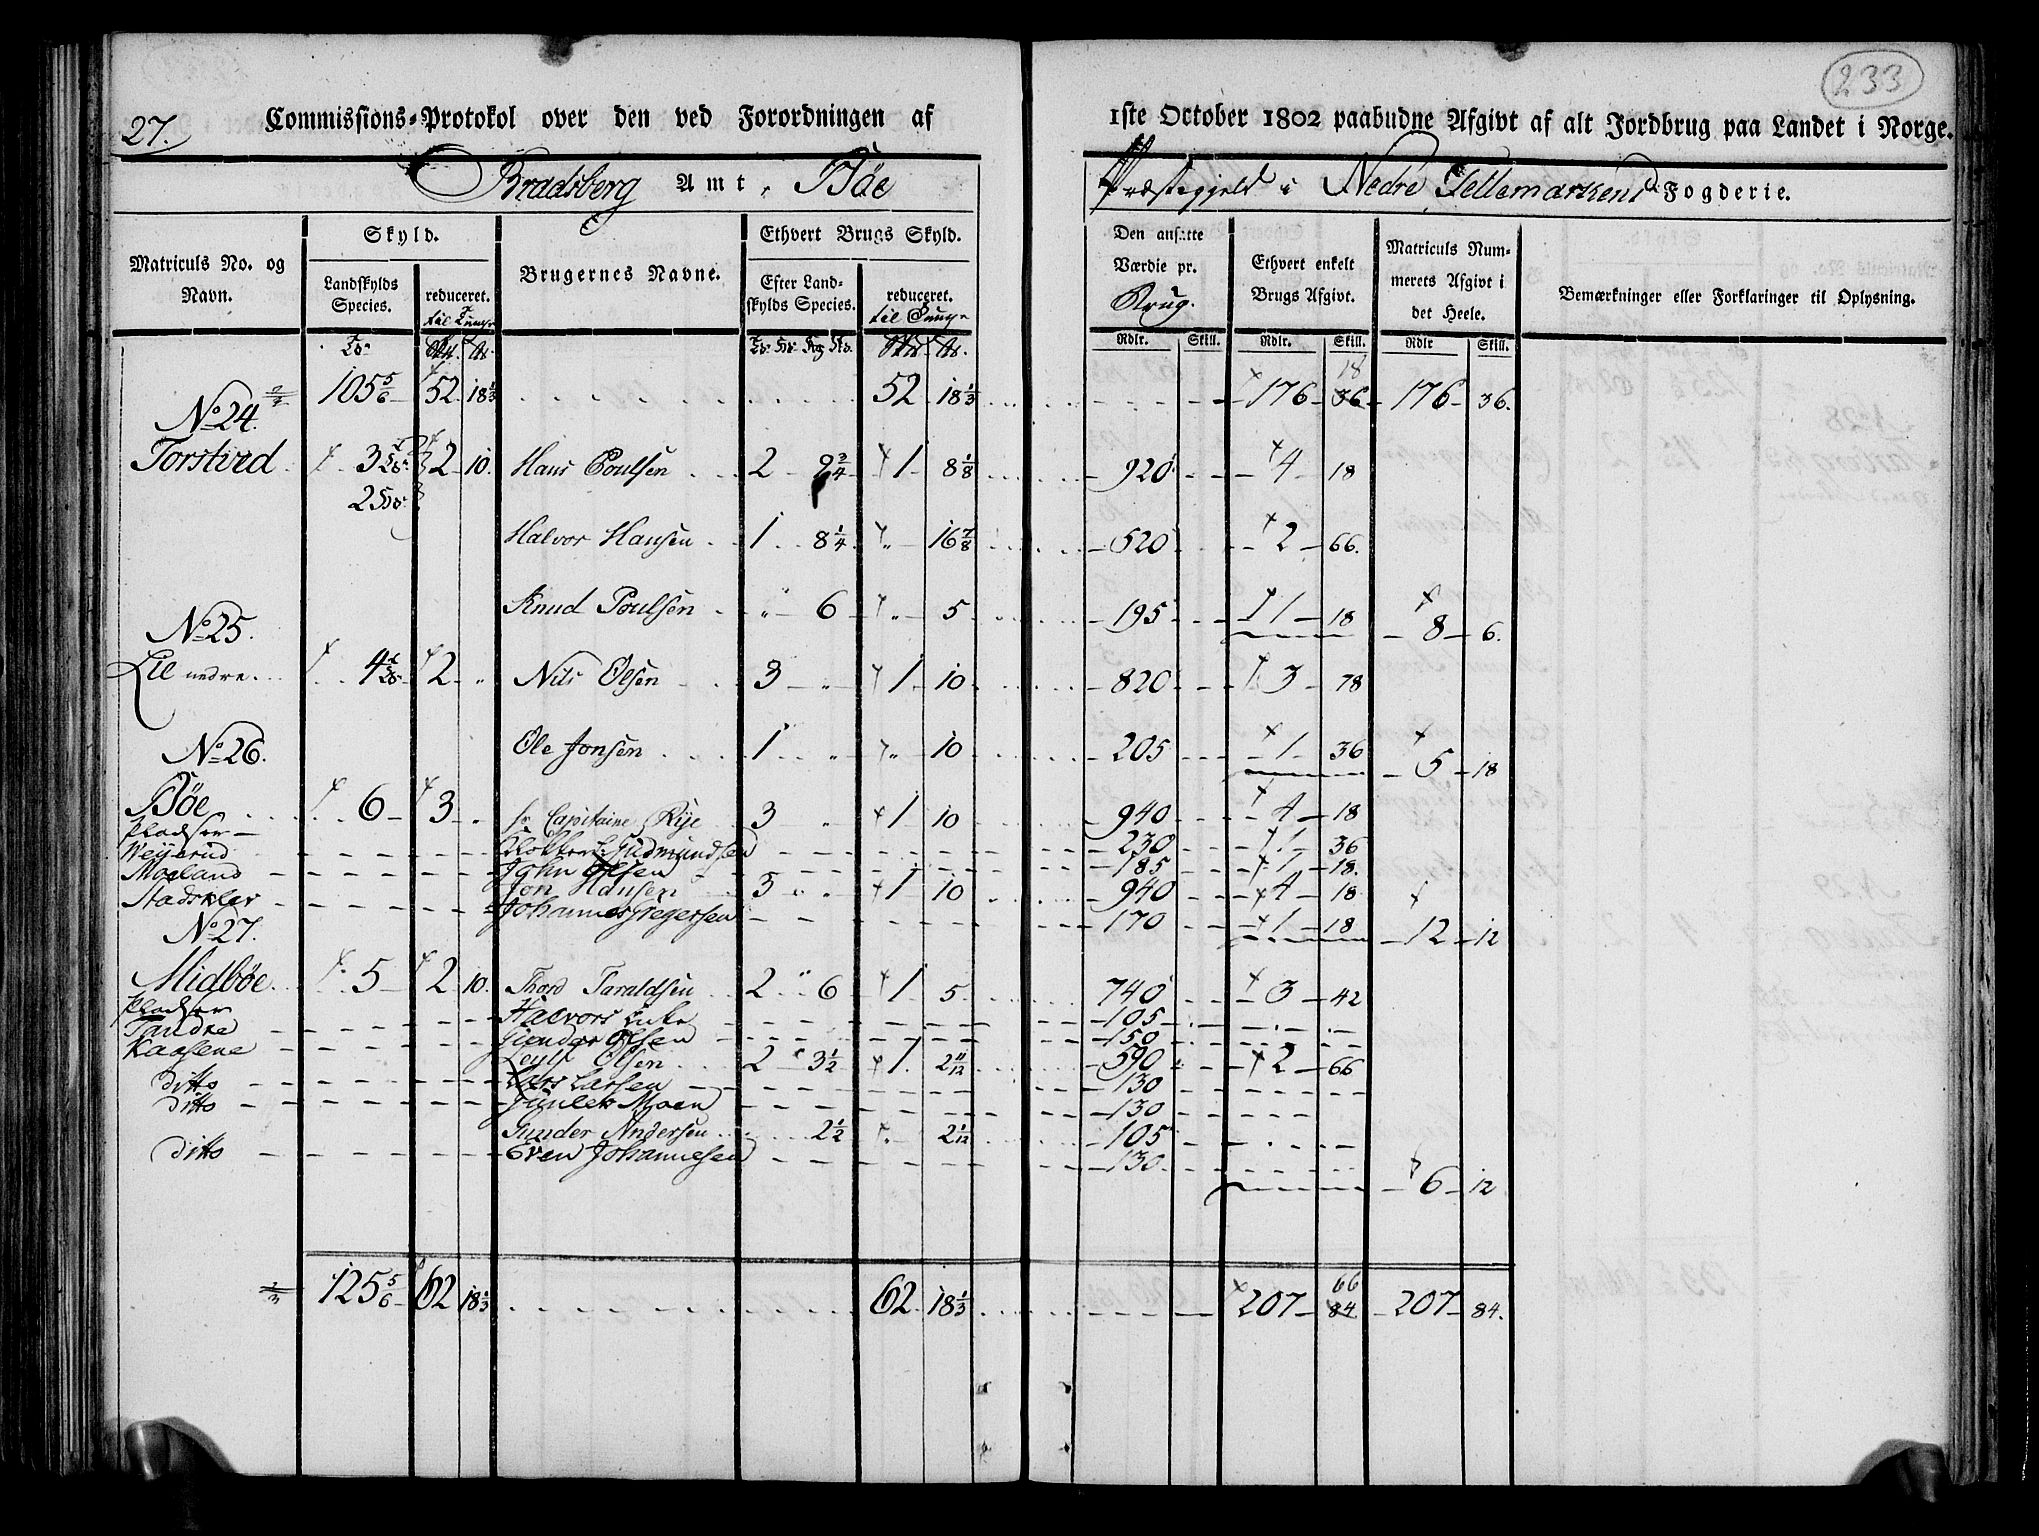 233
27. Commissions-Protokol over den ved Forordningen af 1ste October 1802 paabudne Afgivt af alt Jordbrug paa Landet i Norge.
Bradsberg Amt, Böe Præstegjeld i Nedre Tellemarkens Fogderie.
Matriculs No. og Navn.
Skyld.
Landskylds Species.
reduceret. til Tunge
Brugernes Navne.
Ethvert Brugs Skyld.
Efter Landskylds Species.
reduceret. til Tunge
Den ansatte Værdie pr. Brug.
Ethvert enkelt Brugs Afgivt.
Matriculs Nummerets Afgivt i det Heele.
Bemærkninger eller Forklaringer til Oplysning.
Rdlr. Skill. Rdlr. Skill. Rdlr Skill.
105 5/6 52 18 1/3 52 18 1/3 176 36 18 176 36.
No 24.
Torstved 3 2 10. Hans Poulsen 2 2 3/4 1 8 1/8 920 4 18
2 Halvor Hansen 1 8 1/4 " 16 7/8 520 2 66.
Knud Poulsen " 6 " 5 195 1 18 8 6.
No 25.
Lie nedre. 4 2 " Nils Olsen 3 " 1 10 820 3 78
Ole Jonsen 1 " " 10 205 1 36 5 18
No 26.
Böe 6 3 " Hr Capitaine Rye 3 " 1 10 940 4 18
Pladser
Weyerud Gudmundsen 230 1 36
Moeland John Olsen 185 1 18.
Jon Hansen 3 " 1 10 940 4 18
Stadskler Johannes Gregersen 170 1 18 12 12
No 27.
Midböe 5 2 10. Thord Taraldsen 2 " 6 1 5 740 3 42
Pladser
Tandre Halvors Enke 105
Kaasene Gunder Olsen 150
Leulf Olsen 2 3 1/2 1 2 11/12 590 2 66
ditto Lars Larsen 130
ditto Gunlek Moen 130
Gunder Andersen 2 1/2 " 2 1/12 105
ditto Even Johannesen 130
6 12
125 5/6 62 18 1/3 62 18 1/3 207 84 66 207 84.